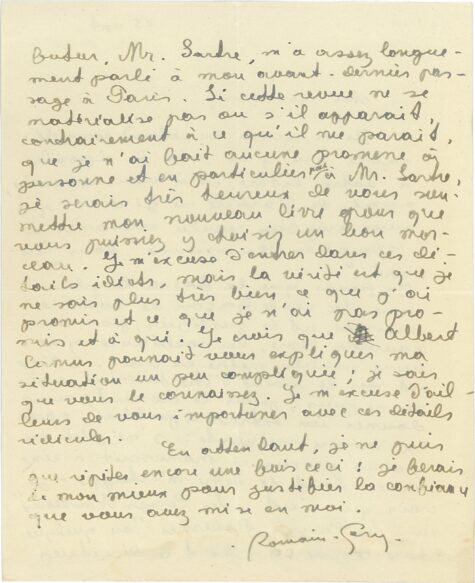 buteur, Mr. Sartre, m'a assez longue-
ment parlé à mon avant-dernier pas-
sage à Paris. Si cette revue ne se
matérialise pas ou s'il apparait,
contrairement à ce qu'il me parait,
que je n'ai fait aucune promesse à
personne et en particulier ni à Mr. Sartre,
je serais très heureux de vous sou-
mettre mon nouveau livre pour que
vous puissiez y choisir un bon mor-
ceau. Je m'excuse d'entrer dans ces dé-
tails idiots, mais la vérité est que je
ne sais plus très bien ce que j'ai
promis et ce que je n'ai pas pro-
mis et à qui. Je crois que Albert
Camus pourrait vous expliquer ma
situation un peu compliquée ; je sais
que vous le connaissez. Je m'excuse d'ail-
leurs de vous importuner avec ces détails
ridicules.
En attendant, je ne puis
que répéter encore une fois ceci : je ferais
de mon mieux pour justifier la confiance
que vous avez mise en moi.
Romain Gary.